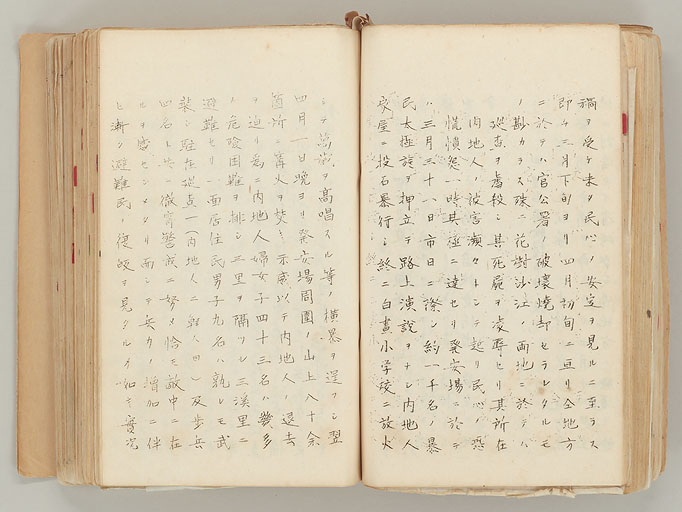 禍ヲ受ケ未タ民心ノ安定ヲ見ルニ至ラス
即チ三月下旬ヨリ四月初旬ニ亘リ全地方
ニ於テハ官公署ノ破壊焼却セラレタルモ
ノ尠カラス殊ニ花樹沙江ノ両地ニ於テハ
巡査ヲ虐殺シ其死屍ヲ凌辱セリ其所在
内地人ノ被害頻々トシテ起リ民心ノ恐
慌憤怨一時其極ニ達セリ発安場ニ於テ
ハ三月三十一日市日ニ際シ約一千名ノ暴
民太極旗ヲ押立テ路上演説ヲナシ内地人
家屋ニ投石暴行シ終ニ白晝小学校ニ放火
シテ萬歳ヲ高唱スル等ノ横暴ヲ逞フシ翌
四月一日晩ヨリ発安場周囲ノ山上八十余
箇所ニ篝火ヲ焚キ示威以テ内地人ノ退去
ヲ迫リ為ニ内地人婦女子四十三名ハ幾多
ノ危険困難ヲ排シ三里ヲ隔ツル三溪里ニ
避難セリ一面居住民男子九名ハ孰レモ武
装シ駐在巡査(内地人 鮮人)及歩兵
四名ト共ニ徹宵警戒ニ努メ恰モ敵中ニ在
ルヲ感セシメタリ而シテ兵力ノ増加ニ伴
ヒ漸ク避難民ノ復帰ヲ見タルカ如キ實況